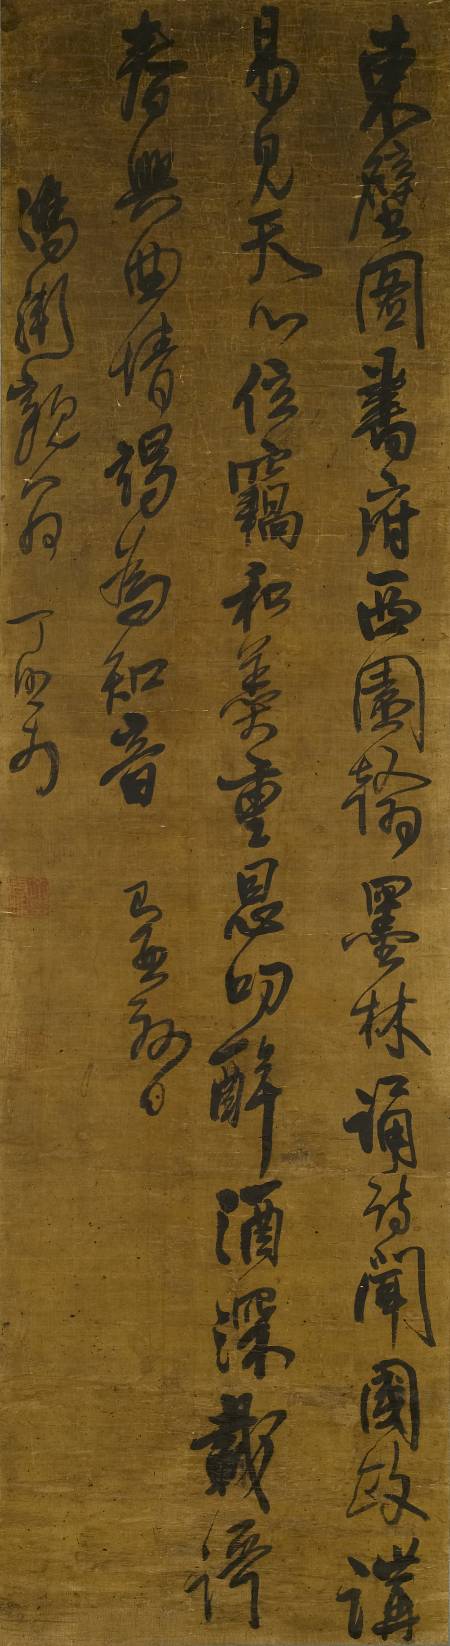 東壁圖書府西園翰墨林誦詩聞國政講
易見天心位竊和羹重恩叨醉酒深載詩
春興曲情竭為知音
為 親翁